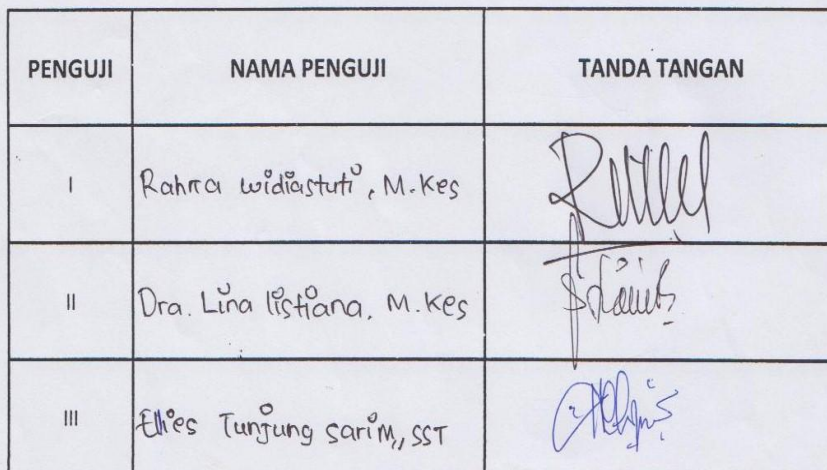 PENGUJI NAMA PENGUJI TANDA TANGAN
I Rahma widiastuti, M.Kes
II Dra. Lina listiana, M.Kes
III Ellies Tunjung sari M,, SST